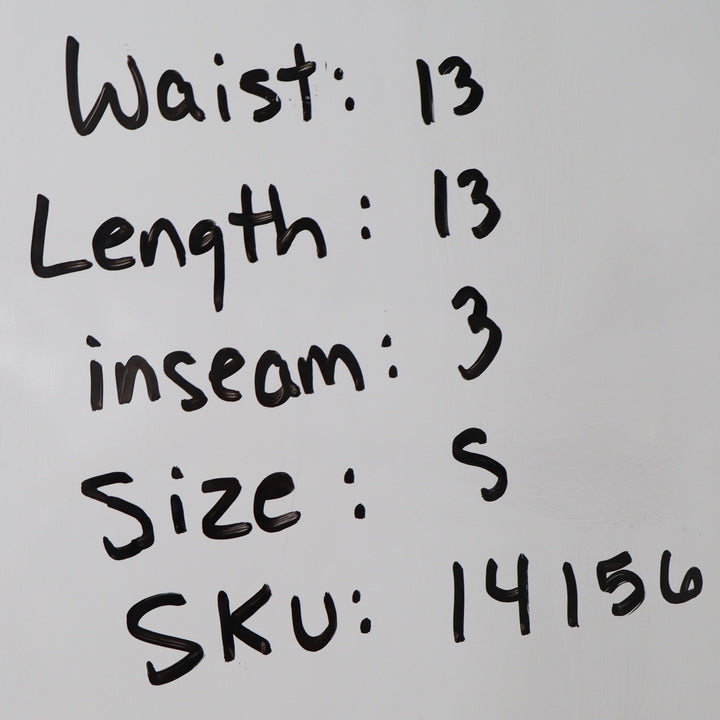 Waist: 13
Length: 13
inseam: 3
Size: S
SKU: 14156